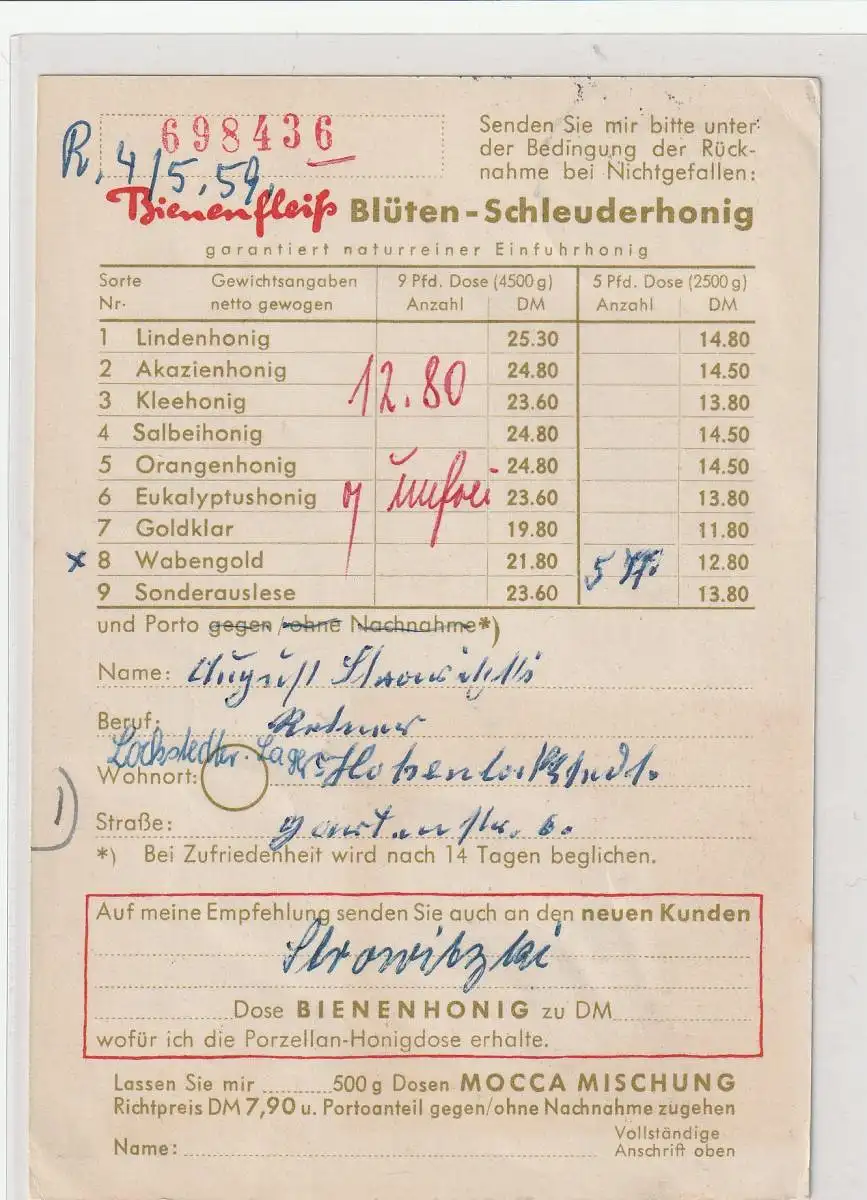 698436
R. 4/5.59.
Senden Sie mir bitte unter
der Bedingung der Rück-
nahme bei Nichtgefallen:
Bienenfleiß Blüten-Schleuderhonig
garantiert naturreiner Einfuhrhonig
Sorte Gewichtsangaben 9 Pfd. Dose (4500 g) 5 Pfd. Dose (2500 g)
Nr. netto gewogen Anzahl DM Anzahl DM
1 Lindenhonig 25.30 14.80
2 Akazienhonig 24.80 14.50
12.80
3 Kleehonig 23.60 13.80
4 Salbeihonig 24.80 14.50
5 Orangenhonig 24.80 14.50
6 Eukalyptushonig unfrei 23.60 13.80
7 Goldklar 19.80 11.80
x 8 Wabengold 21.80 5 12.80
9 Sonderauslese 23.60 13.80
und Porto gegen/ohne Nachnahme*)
Name: August Strowitzki
Beruf: Retner
Lockstedter-Lager
Wohnort: Hohenlockstedt.
Straße: gartenstr. 6.
1)
*) Bei Zufriedenheit wird nach 14 Tagen beglichen.
Auf meine Empfehlung senden Sie auch an den neuen Kunden
Strowitzki
Dose BIENENHONIG zu DM
wofür ich die Porzellan-Honigdose erhalte.
Lassen Sie mir 500 g Dosen MOCCA MISCHUNG
Richtpreis DM 7,90 u. Portoanteil gegen/ohne Nachnahme zugehen
Name: Vollständige
Anschrift oben